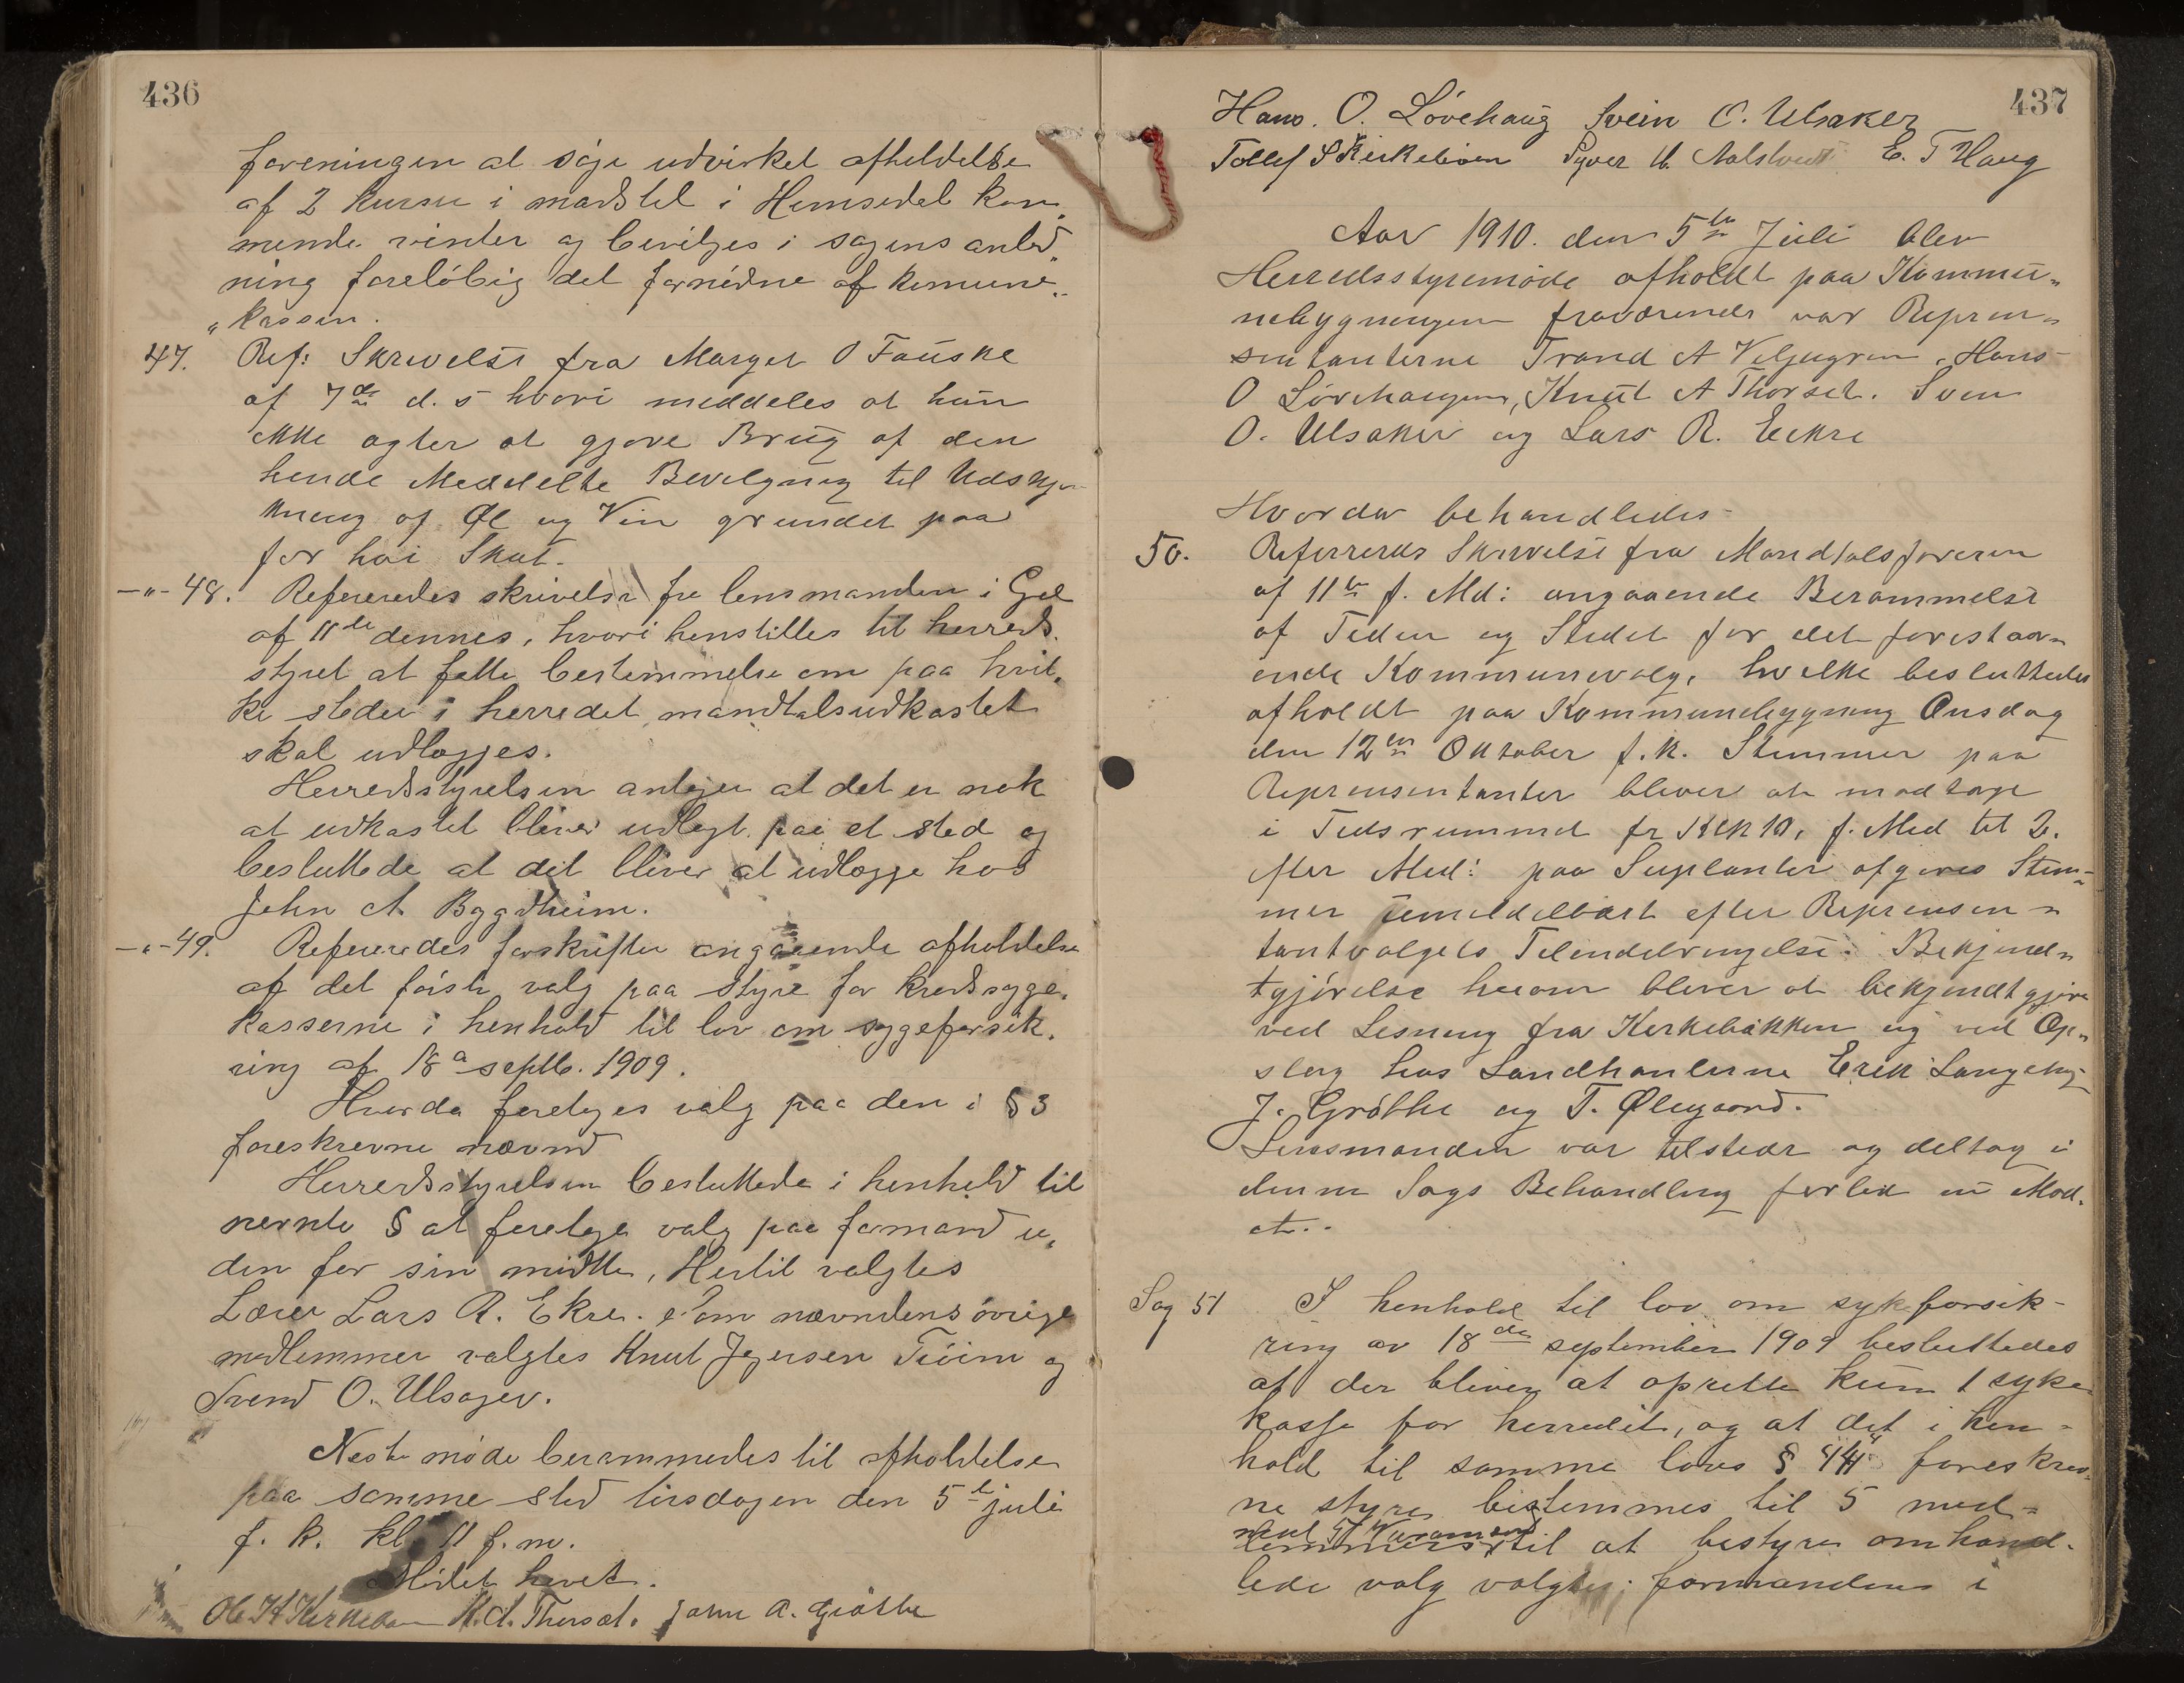 436
foreningen at søge udvirket afholdelse
af 2 kurser i madstel i Hemsedal kom„
mende vinter og bevilges i sagens anled„
ning foreløbig det fornødne af komune„
„kassen.
47. Ref: Skrivelse fra Marget O Fauske
af 7de d. s hvori meddeles at hun
ikke agter at gjøre Brug af den
hende Meddelte Bevilgning til Udskjæ
kning af Øl og Vin grundet paa
for høi Skat.
-"- 48. Refereredes skrivelse fra lensmanden i Gol
af 11de dennes, hvori henstilles til herreds„
styret at fatte bestemmelse om paa hvil„
ke steder i herredet mandtalsudkastet
skal udlægges.
Herredsstyrelsen antager at det er nok
at udkastet bliver udlagt paa et sted og
besluttede at det bliver at udlægge hos
John A. Bygdheim.
-"- 49. Refereredes forskrifter angaaende afholdelse
af det første valg paa styre for kredssyge„
kasserne i henhold til lov om sygeforsik„
ring af 18a septb. 1909.
Hvorda foretages valg paa den i § 3
foreskrevne nævnd
Herredsstyrelsen besluttede i henhold til
nævnte § at foretage valg paa formand u„
den for sin midte, Hertil valgtes
Lærer Lars R. Ekre. som nævndens øvrige
medlemmer valgtes Knut Jegersen Trøim og
Svend O. Ulsager.
Neste møde berammedes til afholdelse
paa samme sted tirsdagen den 5te juli
f. k. kl. 11 f. m.
Mødet hævet.
Ole H Kirkebøen K. A. Thorset. John A. Grøthe
437
Hans. O. Løvehaug Svein O. Ulsaker
Tollef S Kirkebøen Syver H. E. T Haug
Aar 1910. den 5te Juli blev
Herredsstyremøde afholdt paa Kommu„
nebygningen fraværende var Repræ„
sentanterne Trond A Veljugrein, Hans
O Løvehaugen, Knut A Thorset. Sven
O. Ulsaker og Lars R. Eekre
Hvorda behandledes-
50. Refereredes Skrivelse fra Mandtalsføreren
af 11te f. Md: angaaende Berammelse
af Tiden og Stedet for det forestaa„
ende Kommunevalg, hvilke besluttedes
afholdt paa Kommunebygning Onsdag
den 12te Oktober f. k. Stemmer paa
Repræsentanter bliver at modtage
i Tidsrummet fr Klk 10, f. Med til 2.
efter Med: paa Suplanter afgives Stem-
mer umiddelbart efter Repræsen„
tantvalgets Tilendebringelse. Bekjend„
tgjørelse herom bliver at bekjendtgjøre
ved Lesning fra Kirkebakken og ved Op„
slag hos Landhanlerne Erik Langehaug
J. Grøthe og T. Ølegaard.
Lensmanden var tilstede og deltog i
denne Sags Behandling forled en Mod.
at..
Sag 51 I henhold til lov om sykeforsik-
ring av 18de september 1909 besluttedes
at der bliver at oprette kun 1 syke
kasse for herredet, og at det i hen-
hold til samme lovs § 44 foreskrev„
ne styre bestemmes til 5 med-
lemmer til at bestyre omhand-
lede valg valgtes: formanden i